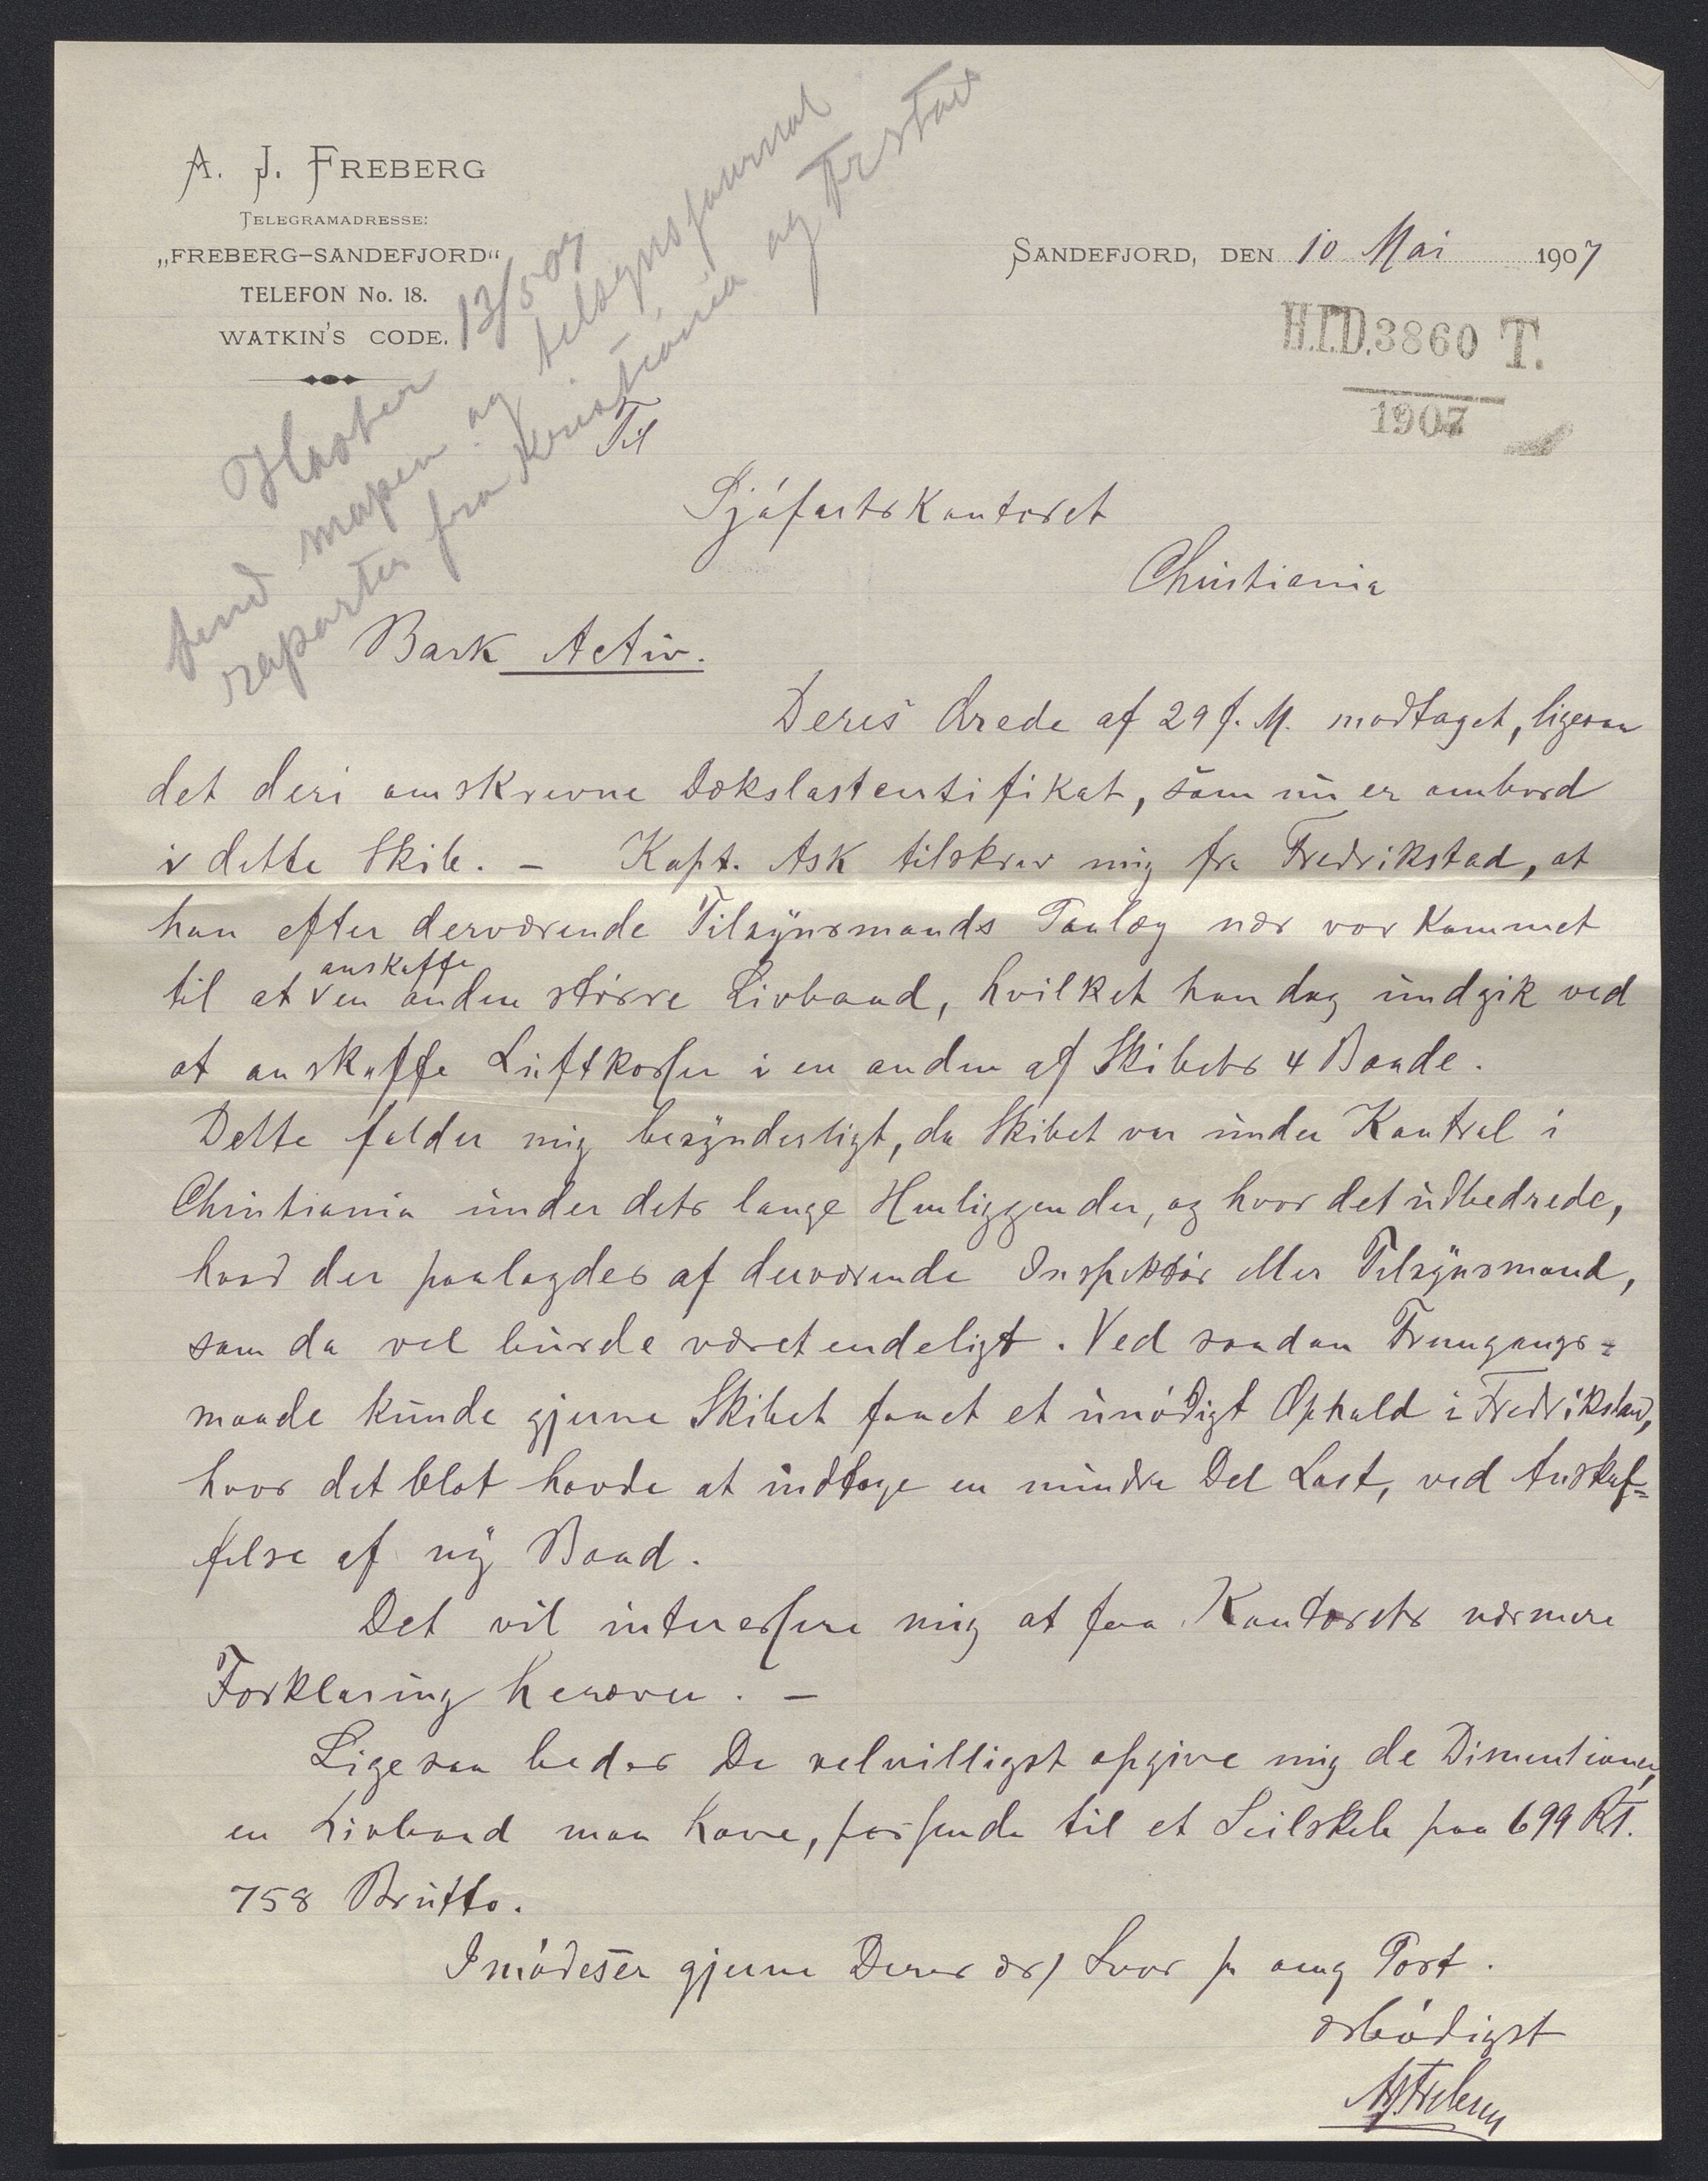 A. J. FREBERG
TELEGRAMADRESSE:
„FREBERG-SANDEFJORD“
TELEFON No. 18.
WATKIN'S CODE.
SANDEFJORD, DEN 10 Mai 1907
H.I.D. 3860 T.
1907
Haster 13/5 07
Send mapen og tilsynsjournal
raporter fra Kristiania og Frstad
Til
Sjöfartskontoret
Christiania
Bark Activ.
Deres ærede af 29 f. M. modtaget, ligesaa
det deri omskrevne Dækslastcertifikat, som nu er ombord
i dette Skib. – Kapt. Ask tilskrev mig fra Fredrikstad, at
han efter derværende Tilsynsmands Paalæg nær var kommet
til at anskaffe en anden större Livbaad, hvilket han dog undgik ved
at anskaffe Luftkasser i en anden af Skibets 4 Baade.
Dette falder mig besynderligt, da Skibet var under Kontrol i
Christiania under dets lange Henliggender, og hvor det udbedrede,
hvad der paalagdes af derværende Inspektör eller Tilsynsmand,
som da vel burde været endeligt. Ved saadan Fremgangs-
maade kunde gjerne Skibet faaet et unödigt Ophold i Fredrikstad,
hvor det blot havde at indtage en mindre Del Last, ved Anskaf-
felse af ny Baad.
Det vil interessere mig at faa Kontorets nærmere
Forklaring herover. –
Ligesaa bedes De velvilligst opgive mig de Dimentioner,
en Livbaad maa have, passende til et Seilskib paa 699 RT.
758 Brutto.
Imödeser gjerne Deres ær/ Svar pr omg Post.
ærbödigst
AJFreberg